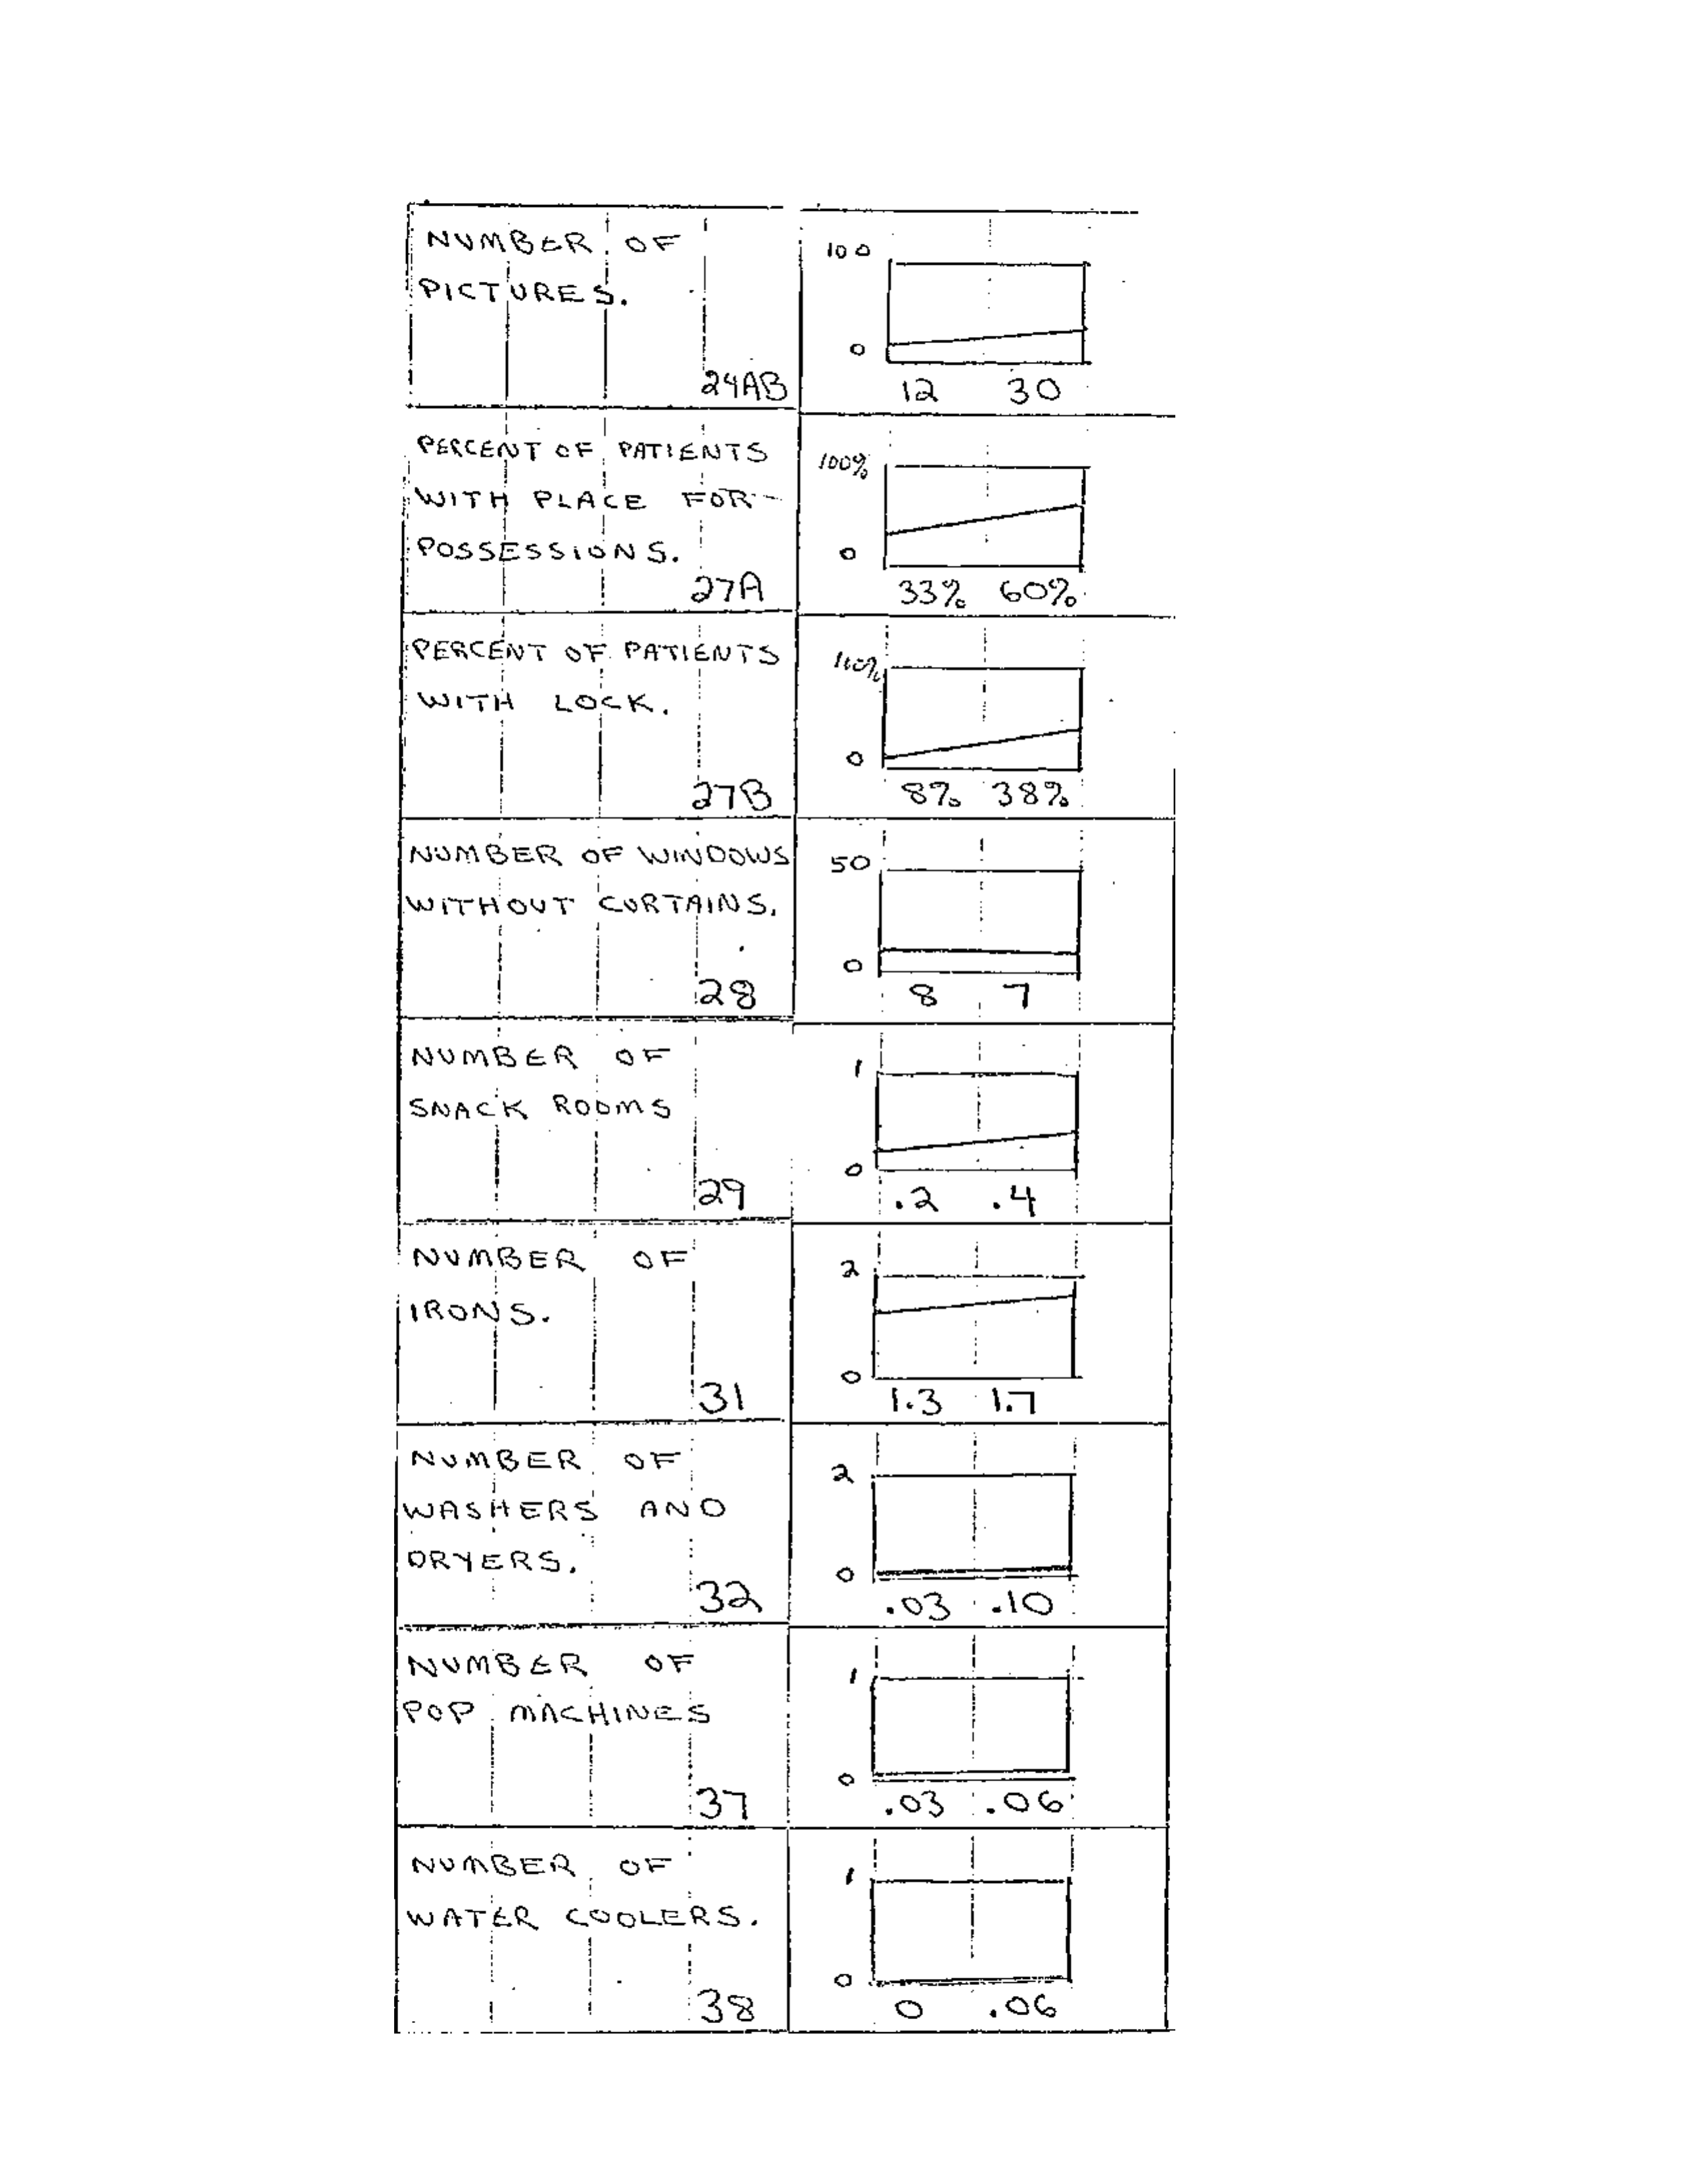 NUMBER OF
PICTURES.
24AB
100
0
12 30
PERCENT OF PATIENTS
WITH PLACE FOR
POSSESSIONS.
27A
100%
0
33% 60%
PERCENT OF PATIENTS
WITH LOCK.
27B
100%
0
8% 38%
NUMBER OF WINDOWS
WITHOUT CURTAINS.
28
50
0
8 7
NUMBER OF
SNACK ROOMS
29
1
0
.2 .4
NUMBER OF
IRONS.
31
2
0
1.3 1.7
NUMBER OF
WASHERS AND
DRYERS.
32
2
0
.03 .10
NUMBER OF
POP MACHINES
37
1
0
.03 .06
NUMBER OF
WATER COOLERS.
38
1
0
0 .06